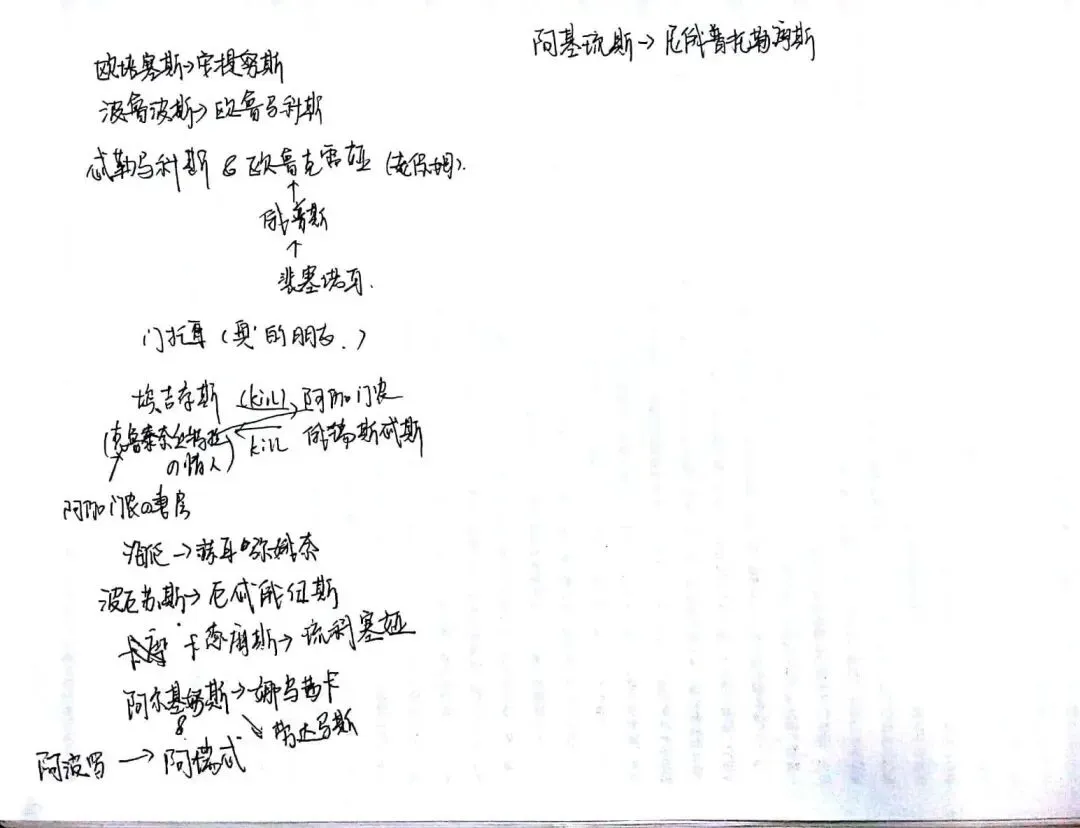 欧培塞斯→安提努斯
波鲁波斯→欧鲁马科斯
忒勒马科斯 & 欧鲁克雷娅 (老保姆).
↑
俄普斯
↑
裴塞诺耳.
门托耳 (奥'的朋友.)
埃吉存斯 (kill) 阿伽门农
(克鲁泰奈丝特拉の情人) kill 俄瑞斯忒斯
阿伽门农の妻房
海伦→赫耳弥娥奈
波厄苏斯→厄忒俄纽斯
卡德摩斯→琉科塞娅
阿尔基努斯→娜乌茜卡
& ↘劳达马斯
阿波罗→阿瑞忒
阿基琉斯→尼俄普托勒摩斯